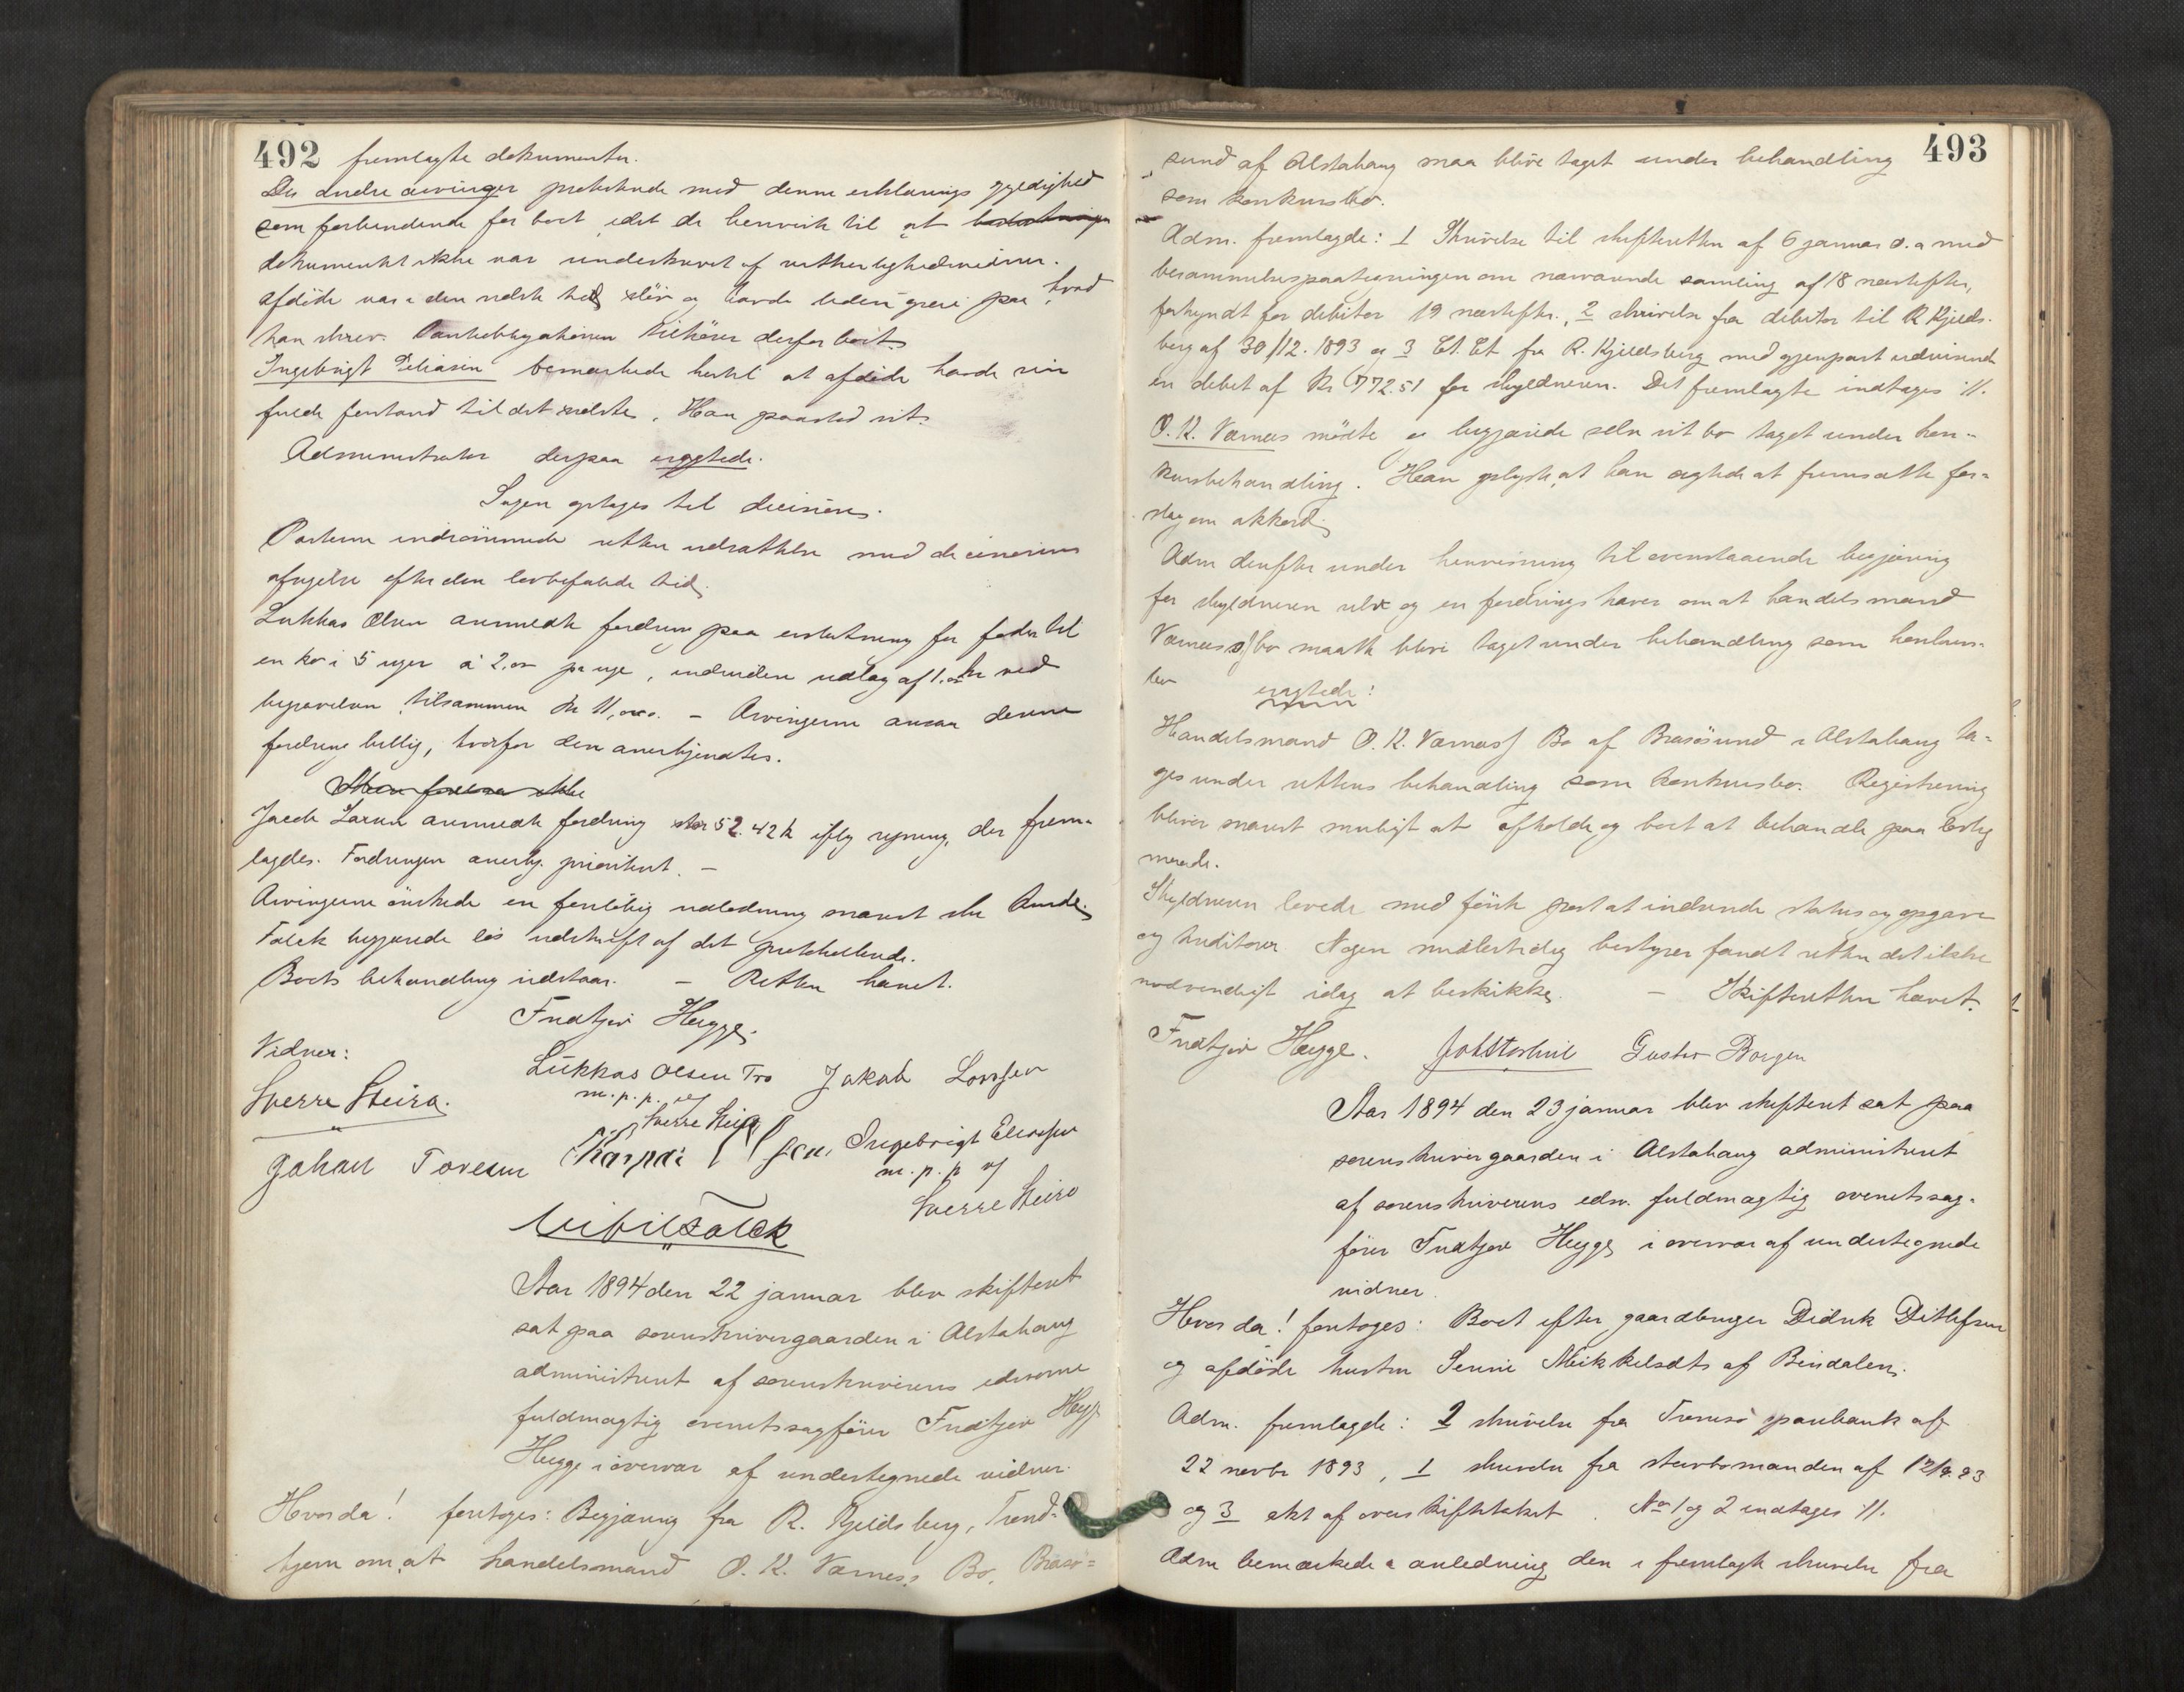 492 fremlagte dokumenter.
De andre arvinger protesterede mod denne erklærings gyldighed
som forbindende for boet, idet de henviste til at
dokumentet ikke var underskrevet af vitterlighedsvidner.
Afdöde var i den sidste tid slöv og havde liden greie paa, hvad
han skrev. Pantobligationen tilhörer derfor boet.
Ingebrigt Eliasen bemærkede hertil at afdöde havde sin
fulde forstand til det sidste. Han paastod sit.
Administrator derpaa eragtede.
Sagen optages til decision.
Parterne indrömmede retten udsættelse med decisionens
afsigelse efter den lovbefalede tid.
Lukkas Olsen anmeldte fordring paa erstatning for foder til
en ko i 5 uger á 2.00 pr uge, endvidere udlag af 1.00 kr ved
begravelsen, tilsammen kr 11,00. – Arvingerne ansaa denne
fordring billig, hvorfor den anerkjendtes.
Jacob Larsen anmeldte fordring stor 52.42 k iflg regning, der frem-
lagdes. Fordringen anerkj. prioritert. –
Arvingerne önskede en foreløbig udlodning snarest ske kunde.
Falck begjærede lös udskrift af det protokollerede.
Boets behandling udstaar. – Retten hævet.
Fridtjov Hegge.
Vidner:
Lukkas Olsen Tro Jakob Larssen
m.p.p. af
Sverre Steiro.
Sverre Steiro
Johan Toresen Ingebrigt Eliassen
m.p.p. af
Sverre Steiro
Falck
Aar 1894 den 22 januar blev skifteret
sat paa sorenskrivergaarden i Alstahaug
administreret af sorenskriverens edsvorne
fuldmægtig overretssagförer Fridtjov Hegge
Hegge i overvær af undertegnede vidner.
Hvorda! foretoges: Begjæring fra R. Kjeldsberg, Trond-
hjem om at handelsmand O. K. Værnes's Bo, Brasö=
493
sund af Alstahaug maa blive taget under behandling
som konkursbo.
Adm. fremlagde: 1 Skrivelse til skifteretten af 6 januar d.a med
berammelsespaategningen om nærværende samling af 18 næstefter,
forkyndt for debitor 19 næstefter., 2 skrivelse fra debitor til R Kjelds-
berg af 30/12. 1893 og 3 Ct. Ct fra R. Kjeldsberg med gjenpart udvisende
en debet af Kr 772.51 for skyldneren. Det fremlagte indtages //.
O. K. Værnes mödte og begjærede selv sit bo taget under kon-
kursbehandling. Han oplyste, at han agtede at fremsætte for-
slag om akkord.
Adm derefter under henvisning til ovenstaaende begjæring
fra skyldneren selv og en fordringshaver om at handelsmand
Værnes's bo maatte blive taget under behandling som konkurs-
bo eragtede:
Handelsmand O. K. Værnes's Bo af Brasösund i Alstahaug ta-
ges under rettens behandling som konkursbo. Registrering
bliver snarest muligt at afholde og boet at behandle paa lovlig
maade.
Skyldneren lovede med förste post at indsende status og opgave
og kreditorer Nogen midlertidig bestyrer fandt retten det ikke
nødvendigt idag at beskikke. – Skifteretten hævet.
Fridtjov Hegge. Gustav Borgen
Aar 1894 den 23 januar blev skifteret sat paa
sorenskrivergaarden i Alstahaug administreret
af sorenskriverens edsv. fuldmægtig overretssag-
förer Fridtjov Hegge i overvær af undertegnede
vidner.
Hvorda! foretoges: Boet efter gaardbruger Didrik Ditlefsen
og afdöde hustru Jennie Mikkelsdtr af Bindalen.
Adm. fremlagde: 2 skrivelse fra Tromsö sparebank af
22 novbr 1893, 1 skrivelse fra stervbomanden af 12/9.93
og 3 ekst af overskiftetaket. No 1 og 2 indtages //.
Adm bemærkede i anledning den i fremlagte skrivelse fra